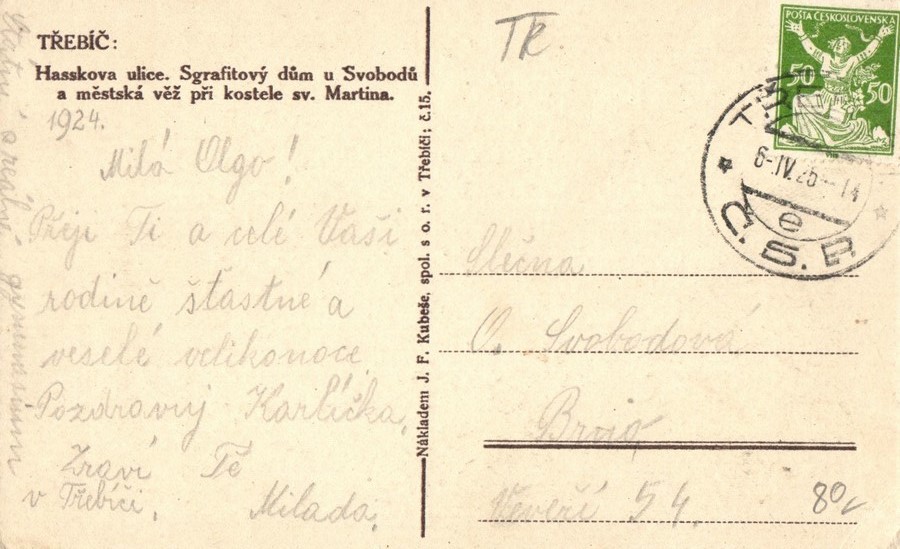 TŘEBÍČ:
Hasskova ulice. Sgrafitový dům u Svobodů
a městská věž při kostele sv. Martina.
1924.
Milá Olgo!
Přeji Ti a celé Vaší
rodině šťastné a
veselé velikonoce
Pozdravuj Karlíčka.
Zdraví Tě
v Třebíči. Milada.
Státní reálné gymnasium
Nákladem J. F. Kubeše, spol. s o. r. v Třebíči; č. 15.
TR
POŠTA ČESKOSLOVENSKÁ
50 50
6-IV.25-14
e
Č.S.R.
Slečna
O. Svobodová
Brno
Veveří 54.
80